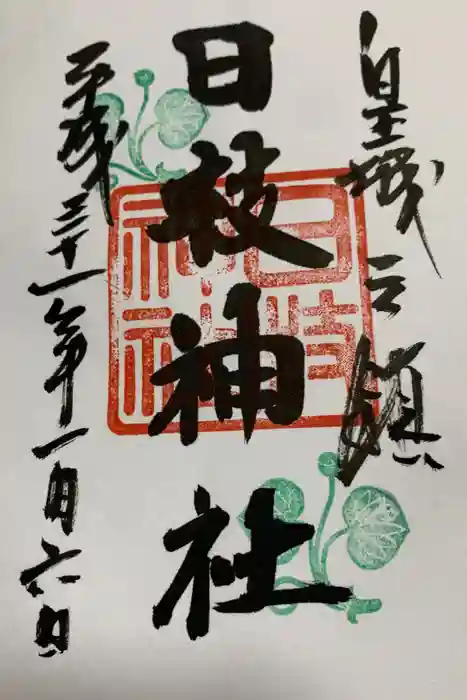 皇城之鎮
日枝神社
日枝神社
平成三十一年一月六日